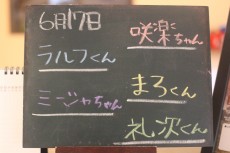 6月17日
ラルフくん
ミジャちゃん
咲楽ちゃん
まろくん
礼次くん